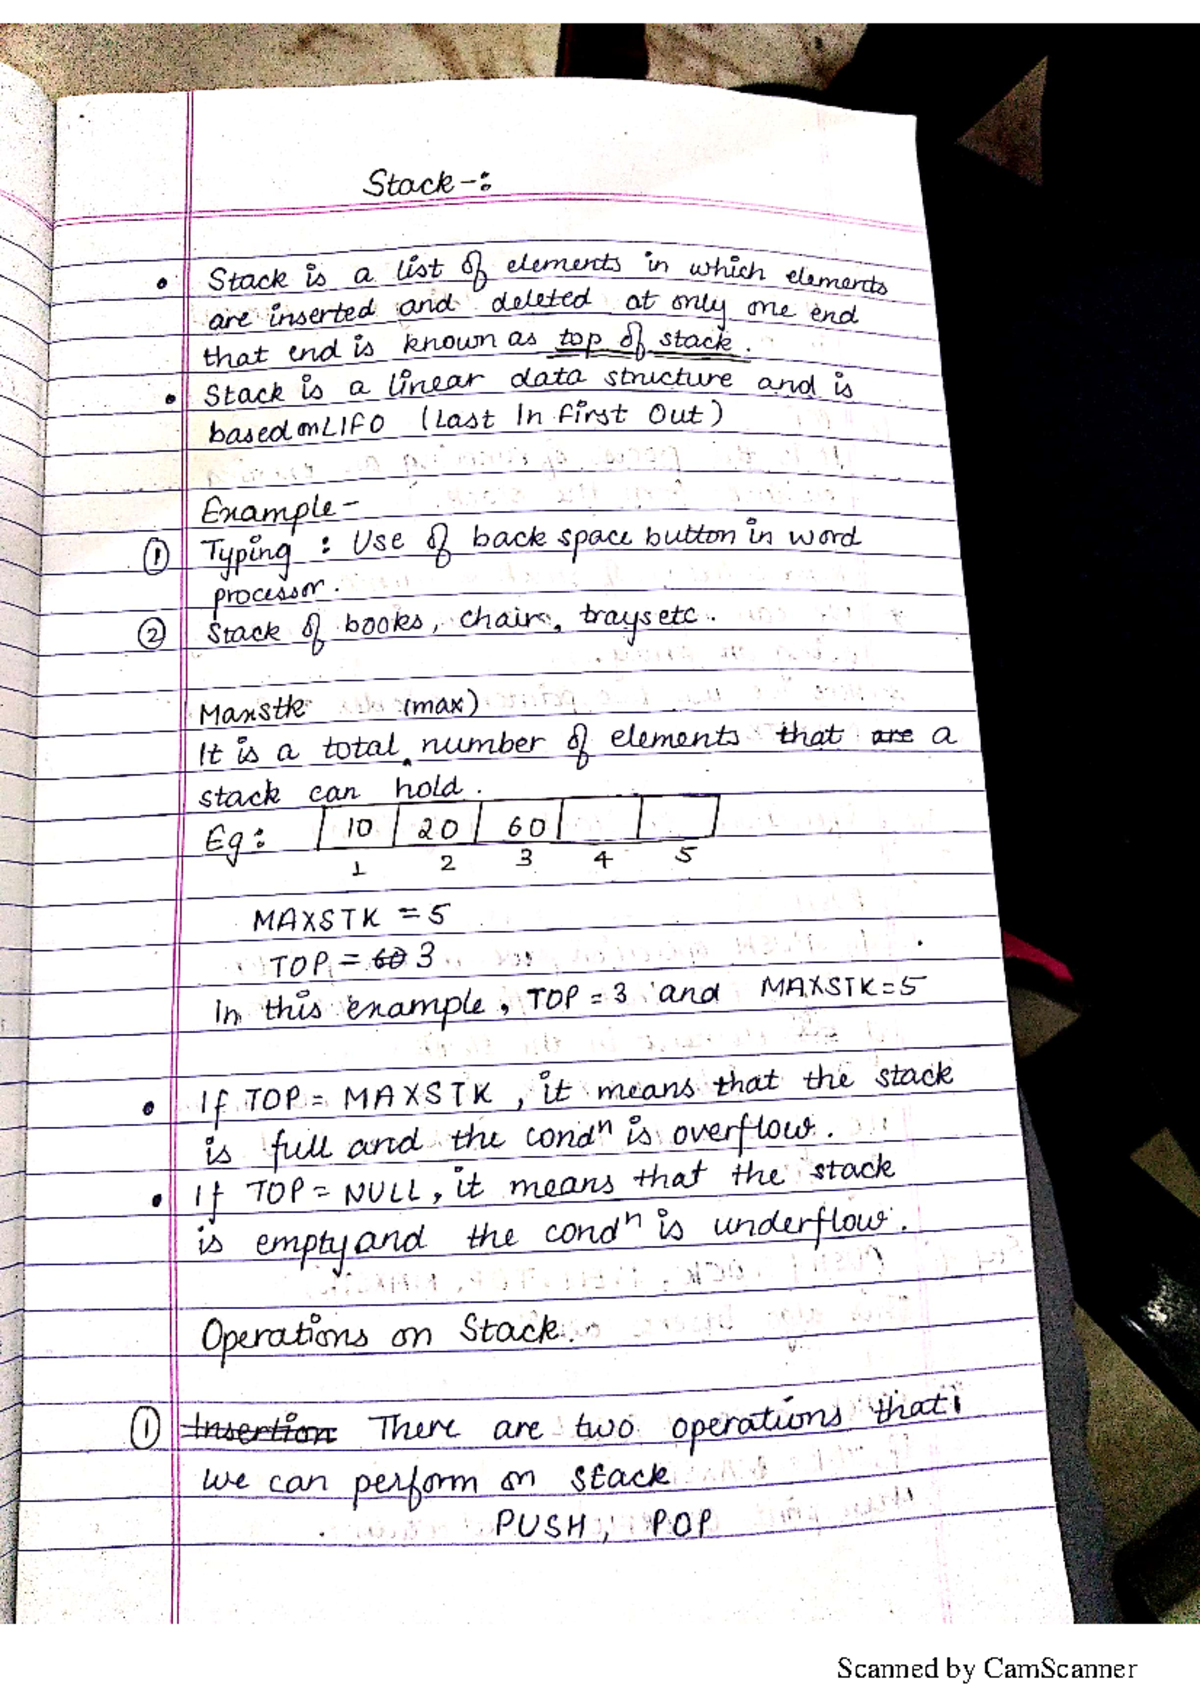 Stack-:
• Stack is a list of elements in which elements
are inserted and deleted at only one end
that end is known as top of stack.
• Stack is a linear data structure and is
based on LIFO (Last In First Out)
Example-
① Typing : Use of back space button in word
processor.
② Stack of books, chair, trays etc.
Maxstk (max)
It is a total number of elements that are a
stack can hold.
Eg: 10 20 60
1 2 3 4 5
MAXSTK = 5
TOP = 60 3
In this example, TOP = 3 and MAXSTK = 5
• If TOP = MAXSTK, it means that the stack
is full and the condⁿ is overflow.
• If TOP = NULL, it means that the stack
is empty and the condⁿ is underflow.
Operations on Stack.
① Insertion There are two operations that
we can perform on stack
PUSH, POP
Scanned by CamScanner